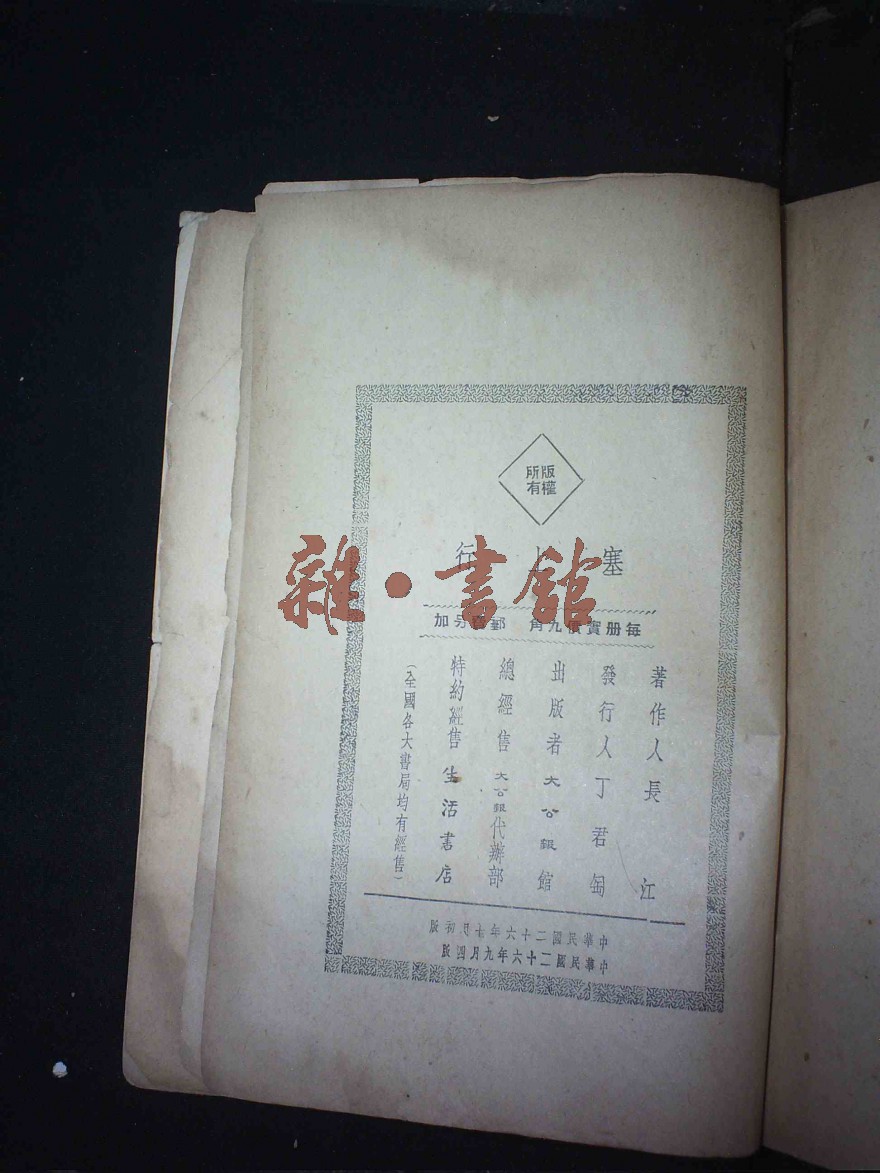 版權
所有
塞上行
每册實價九角 郵費另加
著作人 長江
發行人 丁君匋
出版者 大公報館
總經售 大公報代辦部
特約經售 生活書店
(全國各大書局均有經售)
中華民國二十六年七月初版
中華民國二十六年九月四版
雜·書館